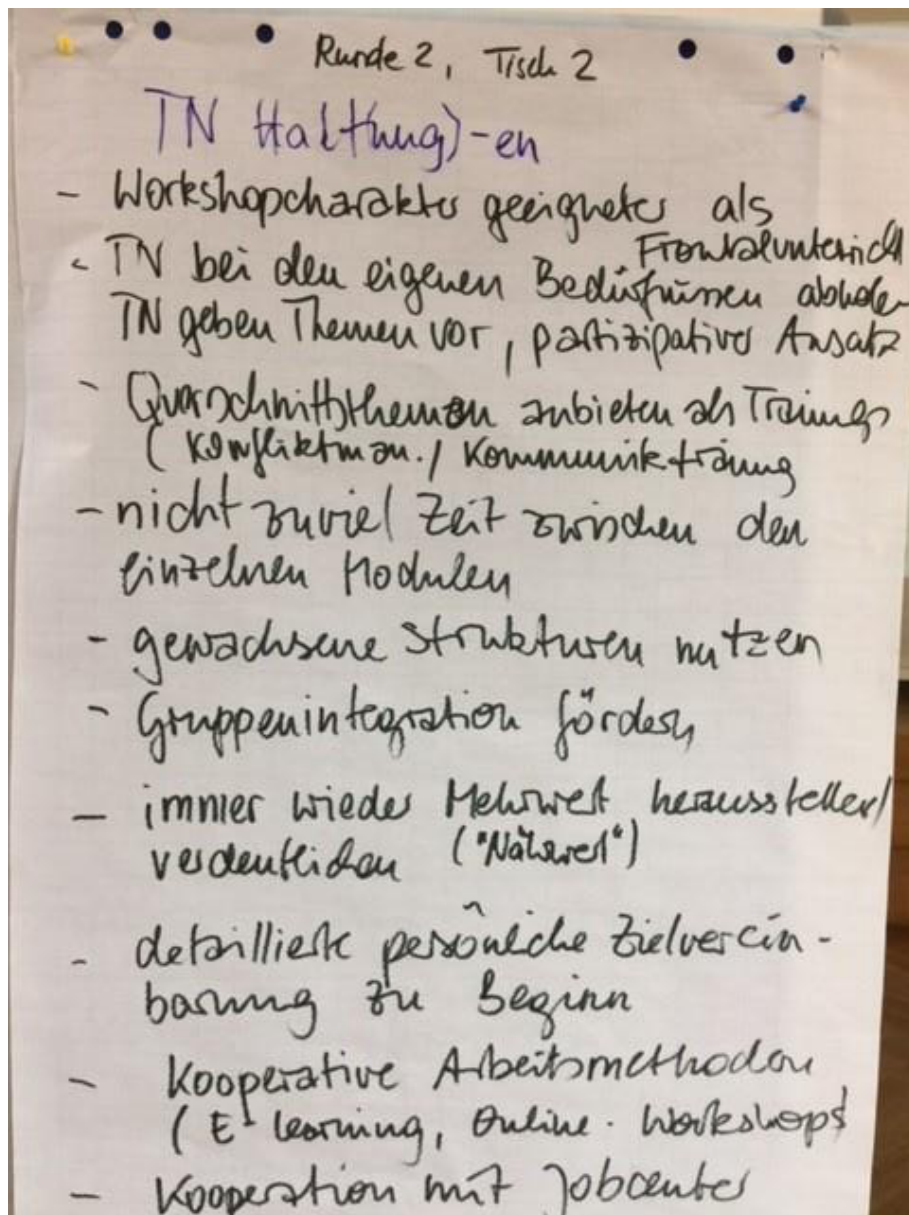 Runde 2, Tisch 2
TN Halt(ung)-en
- Workshopcharakter geeigneter als
Frontalunterricht
- TN bei den eigenen Bedürfnissen abholen
TN geben Themen vor, partizipativer Ansatz
- Querschnittsthemen anbieten als Trainings
(Konfliktman./Kommuniktraining
- nicht zuviel Zeit zwischen den
einzelnen Modulen
- gewachsene Strukturen nutzen
- Gruppenintegration fördern
- immer wieder Mehrwert herausstellen/
verdeutlichen ("Nährwert")
- detaillierte persönliche Zielverein-
barung zu Beginn
- Kooperative Arbeitsmethoden
(E-learning, Online-Workshops
- Kooperation mit Jobcenter